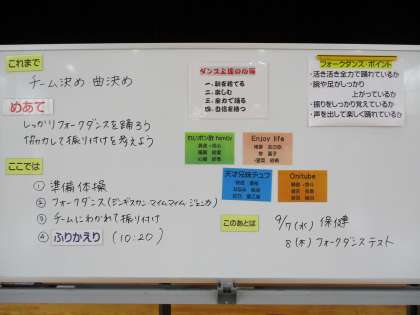 これまで
チーム決め 曲決め
めあて
しっかりフォークダンスを踊ろう
協力して振り付けを考えよう
ここでは
① 準備体操
② フォークダンス(ジンギスカン マイムマイム ジェンカ)
③ チームにわかれて振り付け
④ ふりかえり (10:20)
ダンス上達の心得
一、恥を捨てる
二、楽しむ
四、自信を持つ
family
Enjoy life
天才兄妹チュプ
Onitube
フォークダンス・ポイント
・活き活き全力で踊れているか
・腕や足がしっかり
上がっているか
・振りをしっかり覚えているか
・声を出して楽しく踊れているか
このあとは
9/7(水) 保健
8(木) フォークダンステスト